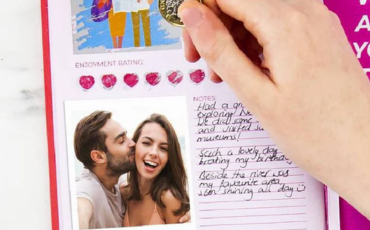 ENJOYMENT RATING:
NOTES
Had a
exploring
we did some
and visited
museums!
Such a lovely day
my birthday
Beside the river was
my favourite area,
sun shining all day
A
YO